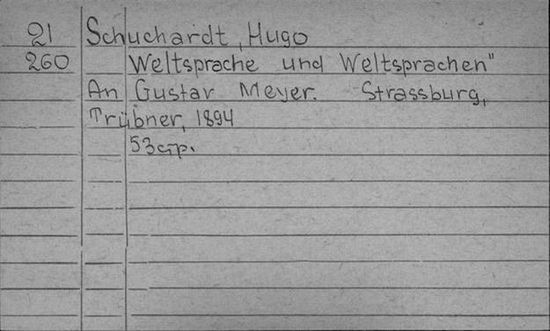 21 Schuchardt, Hugo
260 Weltsprache und Weltsprachen"
An Gustav Meyer. Strassburg,
Trübner, 1894
53 стр.